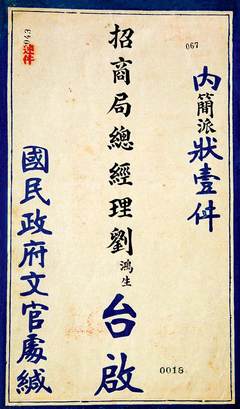 內簡派狀壹件
067
招商局總經理劉鴻生台啟
0018
國民政府文官處緘